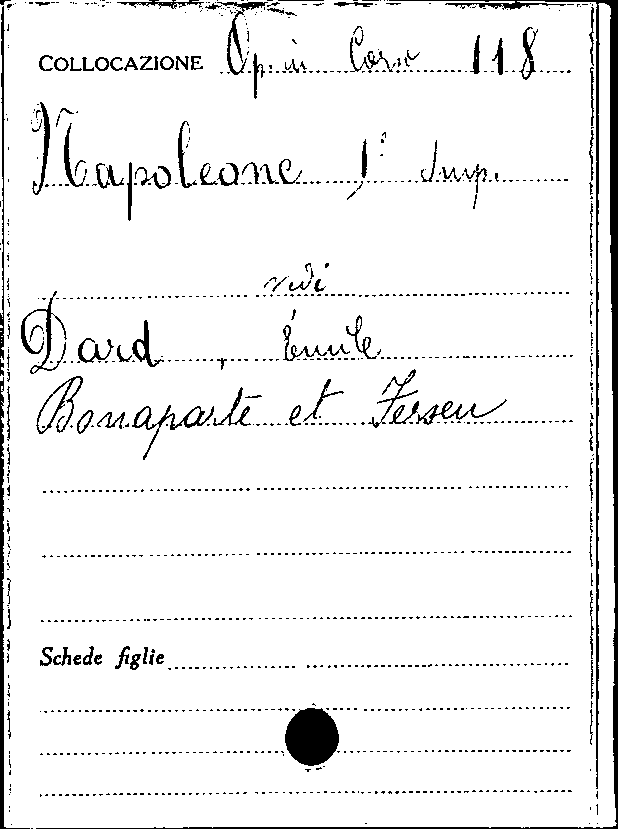 COLLOCAZIONE Op. in Corso 118
Napoleone 1° Imp.
vedi
Dard, Émile
Bonaparte et Fersen
Schede figlie